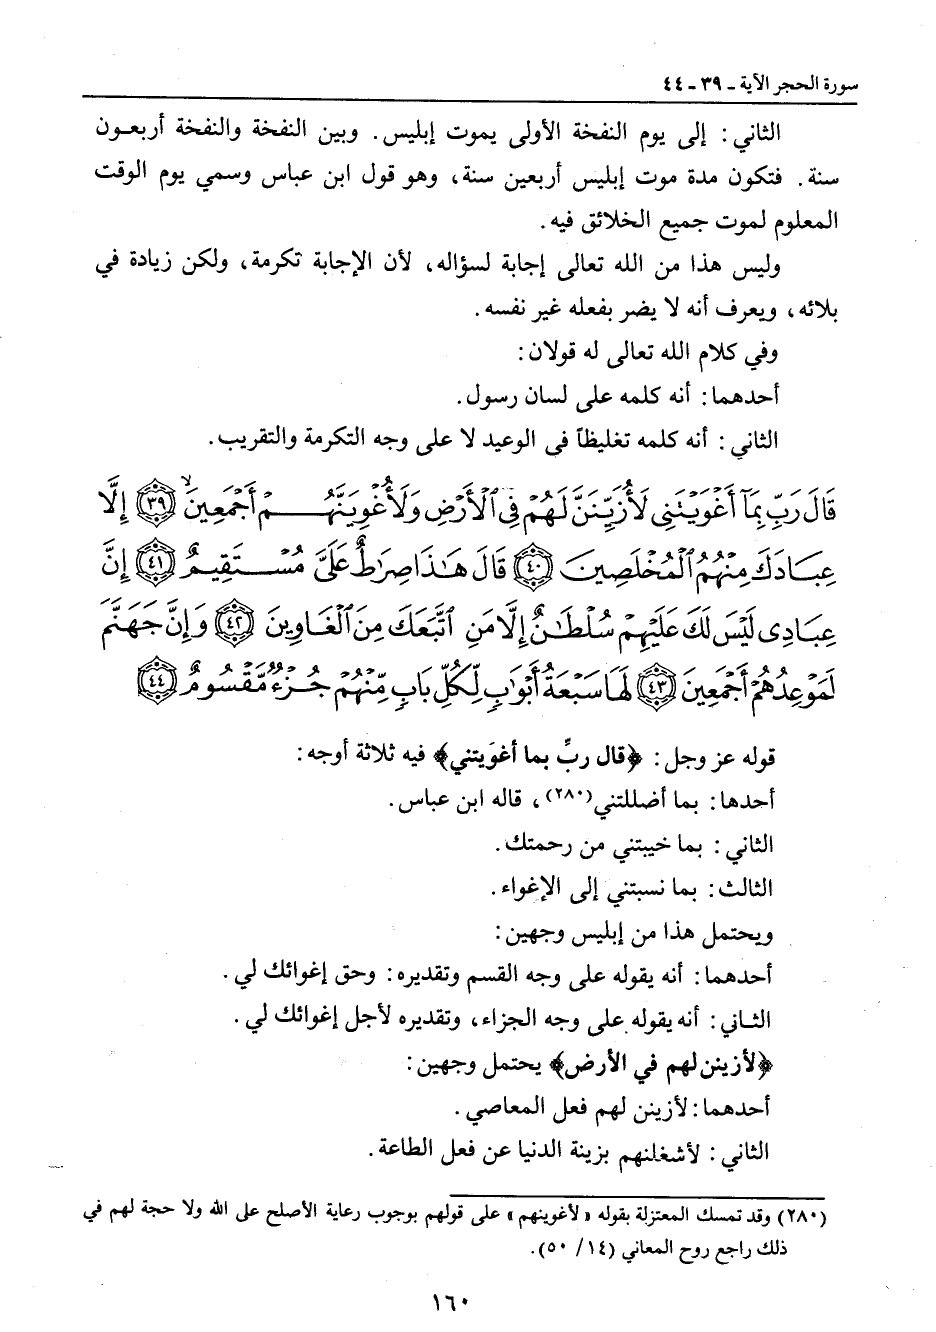 سورة الحجر الآية ـ ٣٩ ـ ٤٤
الثاني : إلى يوم النفخة الأولى يموت إبليس . وبين النفخة والنفخة أربعون
سنة . فتكون مدة موت إبليس أربعين سنة، وهو قول ابن عباس وسمي يوم الوقت
المعلوم لموت جميع الخلائق فيه .
وليس هذا من الله تعالى إجابة لسؤاله، لأن الإجابة تكرمة، ولكن زيادة في
بلائه، ويعرف أنه لا يضر بفعله غير نفسه .
وفي كلام الله تعالى له قولان :
أحدهما : أنه كلمه على لسان رسول .
الثاني : أنه كلمه تغليظاً في الوعيد لا على وجه التكرمة والتقريب .
قَالَ رَبِّ بِمَآ أَغْوَيْتَنِى لَأُزَيِّنَنَّ لَهُمْ فِى ٱلْأَرْضِ وَلَأُغْوِيَنَّهُمْ أَجْمَعِينَ ﴿٣٩﴾ إِلَّا
عِبَادَكَ مِنْهُمُ ٱلْمُخْلَصِينَ ﴿٤٠﴾ قَالَ هَٰذَا صِرَٰطٌ عَلَىَّ مُسْتَقِيمٌ ﴿٤١﴾ إِنَّ
عِبَادِى لَيْسَ لَكَ عَلَيْهِمْ سُلْطَٰنٌ إِلَّا مَنِ ٱتَّبَعَكَ مِنَ ٱلْغَاوِينَ ﴿٤٢﴾ وَإِنَّ جَهَنَّمَ
لَمَوْعِدُهُمْ أَجْمَعِينَ ﴿٤٣﴾ لَهَا سَبْعَةُ أَبْوَٰبٍ لِّكُلِّ بَابٍ مِّنْهُمْ جُزْءٌ مَّقْسُومٌ ﴿٤٤﴾
قوله عز وجل : ﴿قال ربِّ بما أغوَيتني﴾ فيه ثلاثة أوجه :
أحدها : بما أضللتني(٢٨٠)، قاله ابن عباس .
الثاني : بما خيبتني من رحمتك .
الثالث : بما نسبتني إلى الإغواء .
ويحتمل هذا من إبليس وجهين :
أحدهما : أنه يقوله على وجه القسم وتقديره : وحق إغوائك لي .
الثاني : أنه يقوله على وجه الجزاء، وتقديره لأجل إغوائك لي .
﴿لأزينن لهم في الأرض﴾ يحتمل وجهين :
أحدهما : لأزينن لهم فعل المعاصي .
الثاني : لأشغلنهم بزينة الدنيا عن فعل الطاعة .
(٢٨٠) وقد تمسك المعتزلة بقوله «لأغوينهم» على قولهم بوجوب رعاية الأصلح على الله ولا حجة لهم في
ذلك راجع روح المعاني (١٤ / ٥٠) .
١٦٠